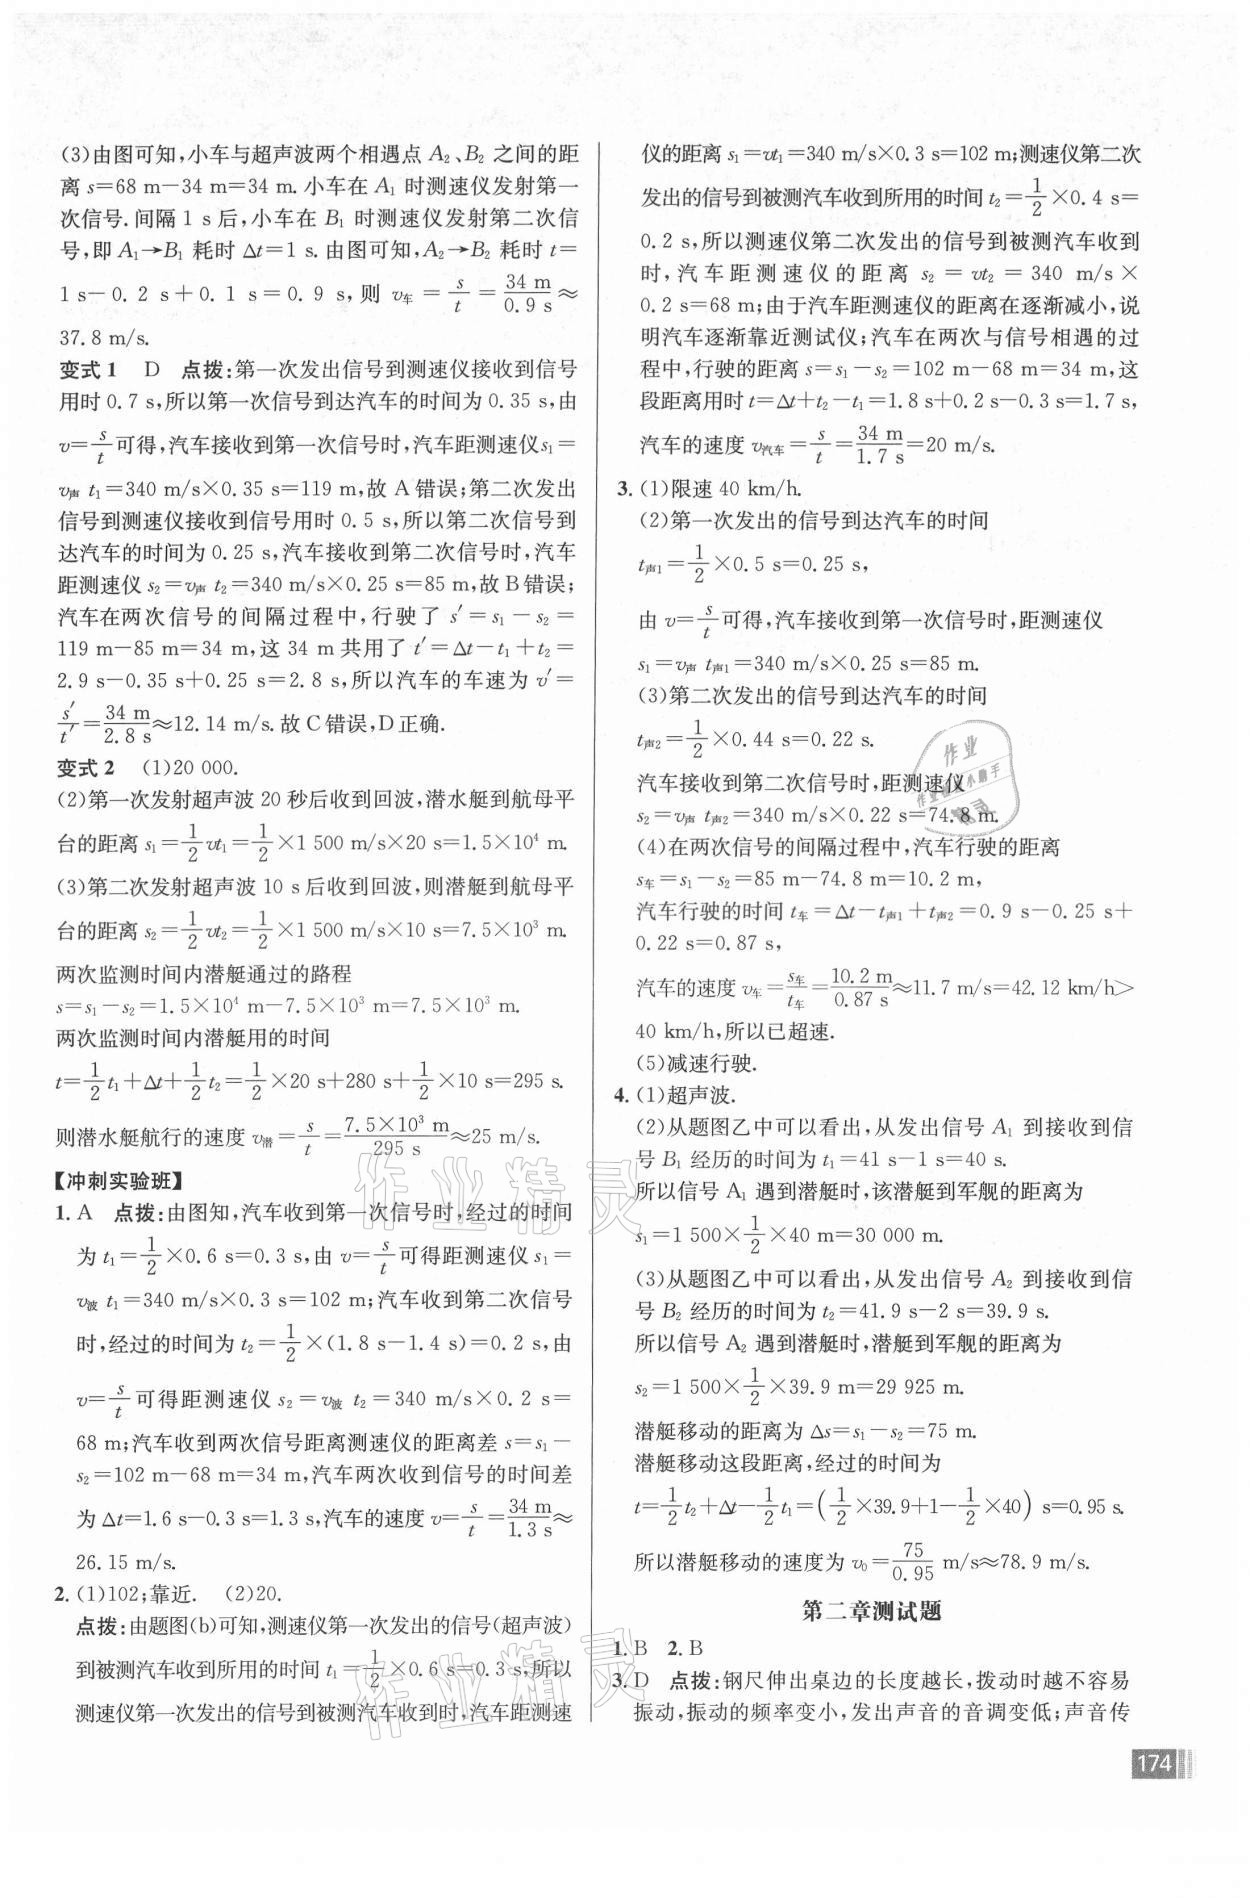 (3)由图可知,小车与超声波两个相遇点 A₂、B₂ 之间的距
离 s=68 m-34 m=34 m. 小车在 A₁ 时测速仪发射第一
次信号. 间隔 1 s 后,小车在 B₁ 时测速仪发射第二次信
号,即 A₁→B₁ 耗时 Δt=1 s. 由图可知,A₂→B₂ 耗时 t=
1 s-0.2 s+0.1 s=0.9 s,则 v车=s/t=34 m/0.9 s≈
37.8 m/s.
变式 1 D 点拨:第一次发出信号到测速仪接收到信号
用时 0.7 s,所以第一次信号到达汽车的时间为 0.35 s,由
v=s/t可得,汽车接收到第一次信号时,汽车距测速仪s₁=
v声 t₁=340 m/s×0.35 s=119 m,故 A 错误;第二次发出
信号到测速仪接收到信号用时 0.5 s,所以第二次信号到
达汽车的时间为 0.25 s,汽车接收到第二次信号时,汽车
距测速仪 s₂=v声 t₂=340 m/s×0.25 s=85 m,故 B 错误;
汽车在两次信号的间隔过程中,行驶了 s′=s₁-s₂=
119 m-85 m=34 m,这 34 m 共用了 t′=Δt-t₁+t₂=
2.9 s-0.35 s+0.25 s=2.8 s,所以汽车的车速为 v′=
s′/t′=34 m/2.8 s≈12.14 m/s. 故 C 错误,D 正确.
变式 2 (1)20 000.
(2)第一次发射超声波 20 秒后收到回波,潜水艇到航母平
台的距离 s₁=1/2 vt₁=1/2×1 500 m/s×20 s=1.5×10⁴ m.
(3)第二次发射超声波 10 s 后收到回波,则潜艇到航母平
台的距离 s₂=1/2 vt₂=1/2×1 500 m/s×10 s=7.5×10³ m.
两次监测时间内潜艇通过的路程
s=s₁-s₂=1.5×10⁴ m-7.5×10³ m=7.5×10³ m.
两次监测时间内潜艇用的时间
t=1/2 t₁+Δt+1/2 t₂=1/2×20 s+280 s+1/2×10 s=295 s.
则潜水艇航行的速度 v潜=s/t=7.5×10³ m/295 s≈25 m/s.
【冲刺实验班】
1. A 点拨:由图知,汽车收到第一次信号时,经过的时间
为 t₁=1/2×0.6 s=0.3 s,由 v=s/t可得距测速仪 s₁=
v波 t₁=340 m/s×0.3 s=102 m;汽车收到第二次信号
时,经过的时间为 t₂=1/2×(1.8 s-1.4 s)=0.2 s,由
v=s/t可得距测速仪 s₂=v波 t₂=340 m/s×0.2 s=
68 m;汽车收到两次信号距离测速仪的距离差 s=s₁-
s₂=102 m-68 m=34 m,汽车两次收到信号的时间差
为 Δt=1.6 s-0.3 s=1.3 s,汽车的速度 v=s/t=34 m/1.3 s≈
26.15 m/s.
2. (1)102;靠近. (2)20.
点拨:由题图(b)可知,测速仪第一次发出的信号(超声波)
到被测汽车收到所用的时间 t₁=1/2×0.6 s=0.3 s,所以
测速仪第一次发出的信号到被测汽车收到时,汽车距测速
仪的距离 s₁=vt₁=340 m/s×0.3 s=102 m;测速仪第二次
发出的信号到被测汽车收到所用的时间 t₂=1/2×0.4 s=
0.2 s,所以测速仪第二次发出的信号到被测汽车收到
时,汽车距测速仪的距离 s₂=vt₂=340 m/s×
0.2 s=68 m;由于汽车距测速仪的距离在逐渐减小,说
明汽车逐渐靠近测试仪;汽车在两次与信号相遇的过
程中,行驶的距离 s=s₁-s₂=102 m-68 m=34 m,这
段距离用时 t=Δt+t₂-t₁=1.8 s+0.2 s-0.3 s=1.7 s,
汽车的速度 v汽车=s/t=34 m/1.7 s=20 m/s.
3. (1)限速 40 km/h.
(2)第一次发出的信号到达汽车的时间
t声1=1/2×0.5 s=0.25 s,
由 v=s/t可得,汽车接收到第一次信号时,距测速仪
s₁=v声 t声1=340 m/s×0.25 s=85 m.
(3)第二次发出的信号到达汽车的时间
t声2=1/2×0.44 s=0.22 s.
汽车接收到第二次信号时,距测速仪
s₂=v声 t声2=340 m/s×0.22 s=74.8 m.
(4)在两次信号的间隔过程中,汽车行驶的距离
s车=s₁-s₂=85 m-74.8 m=10.2 m,
汽车行驶的时间 t车=Δt-t声1+t声2=0.9 s-0.25 s+
0.22 s=0.87 s,
汽车的速度 v车=s车/t车=10.2 m/0.87 s≈11.7 m/s=42.12 km/h>
40 km/h,所以已超速.
(5)减速行驶.
4. (1)超声波.
(2)从题图乙中可以看出,从发出信号 A₁ 到接收到信
号 B₁ 经历的时间为 t₁=41 s-1 s=40 s.
所以信号 A₁ 遇到潜艇时,该潜艇到军舰的距离为
s₁=1 500×1/2×40 m=30 000 m.
(3)从题图乙中可以看出,从发出信号 A₂ 到接收到信
号 B₂ 经历的时间为 t₂=41.9 s-2 s=39.9 s.
所以信号 A₂ 遇到潜艇时,潜艇到军舰的距离为
s₂=1 500×1/2×39.9 m=29 925 m.
潜艇移动的距离为 Δs=s₁-s₂=75 m.
潜艇移动这段距离,经过的时间为
t=1/2 t₂+Δt-1/2 t₁=(1/2×39.9+1-1/2×40) s=0.95 s.
所以潜艇移动的速度为 v₀=75/0.95 m/s≈78.9 m/s.
第二章测试题
1. B 2. B
3. D 点拨:钢尺伸出桌边的长度越长,拨动时越不容易
振动,振动的频率变小,发出声音的音调变低;声音传
174
作业精灵
作业精灵
作业